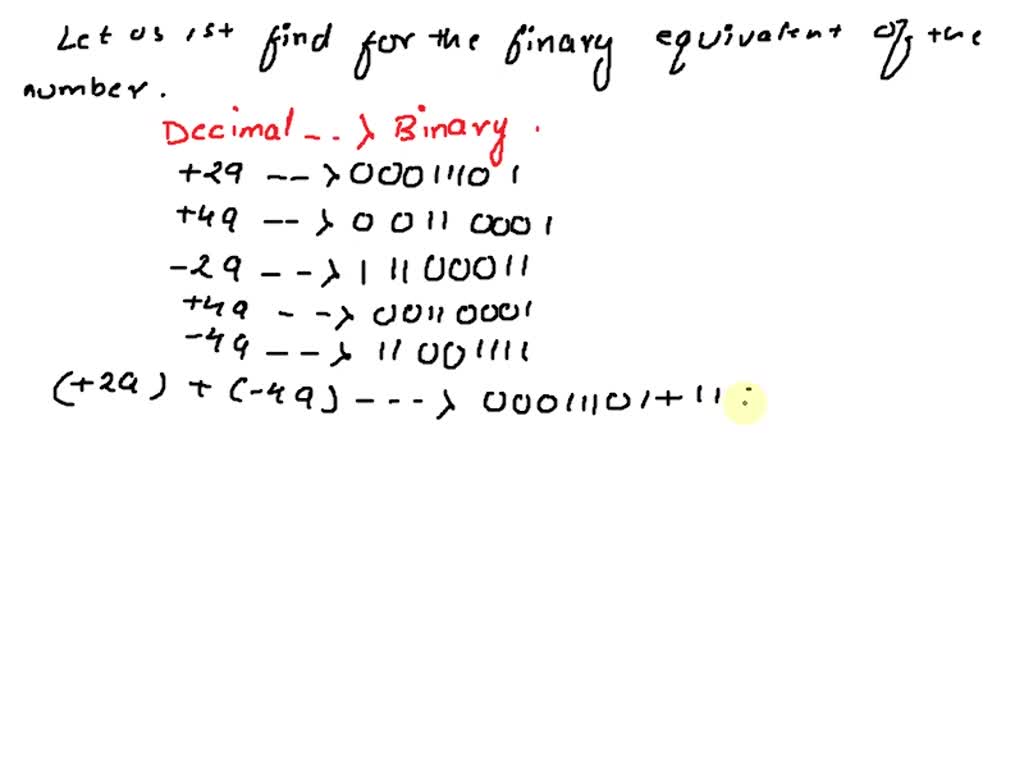 Let us 1st find for the binary equivalent of the
number.
Decimal --> Binary.
+29 --> 00011101
+49 --> 00110001
-29 --> 11100011
+49 --> 00110001
-49 --> 11001111
(+29) + (-49) ---> 00011101+11